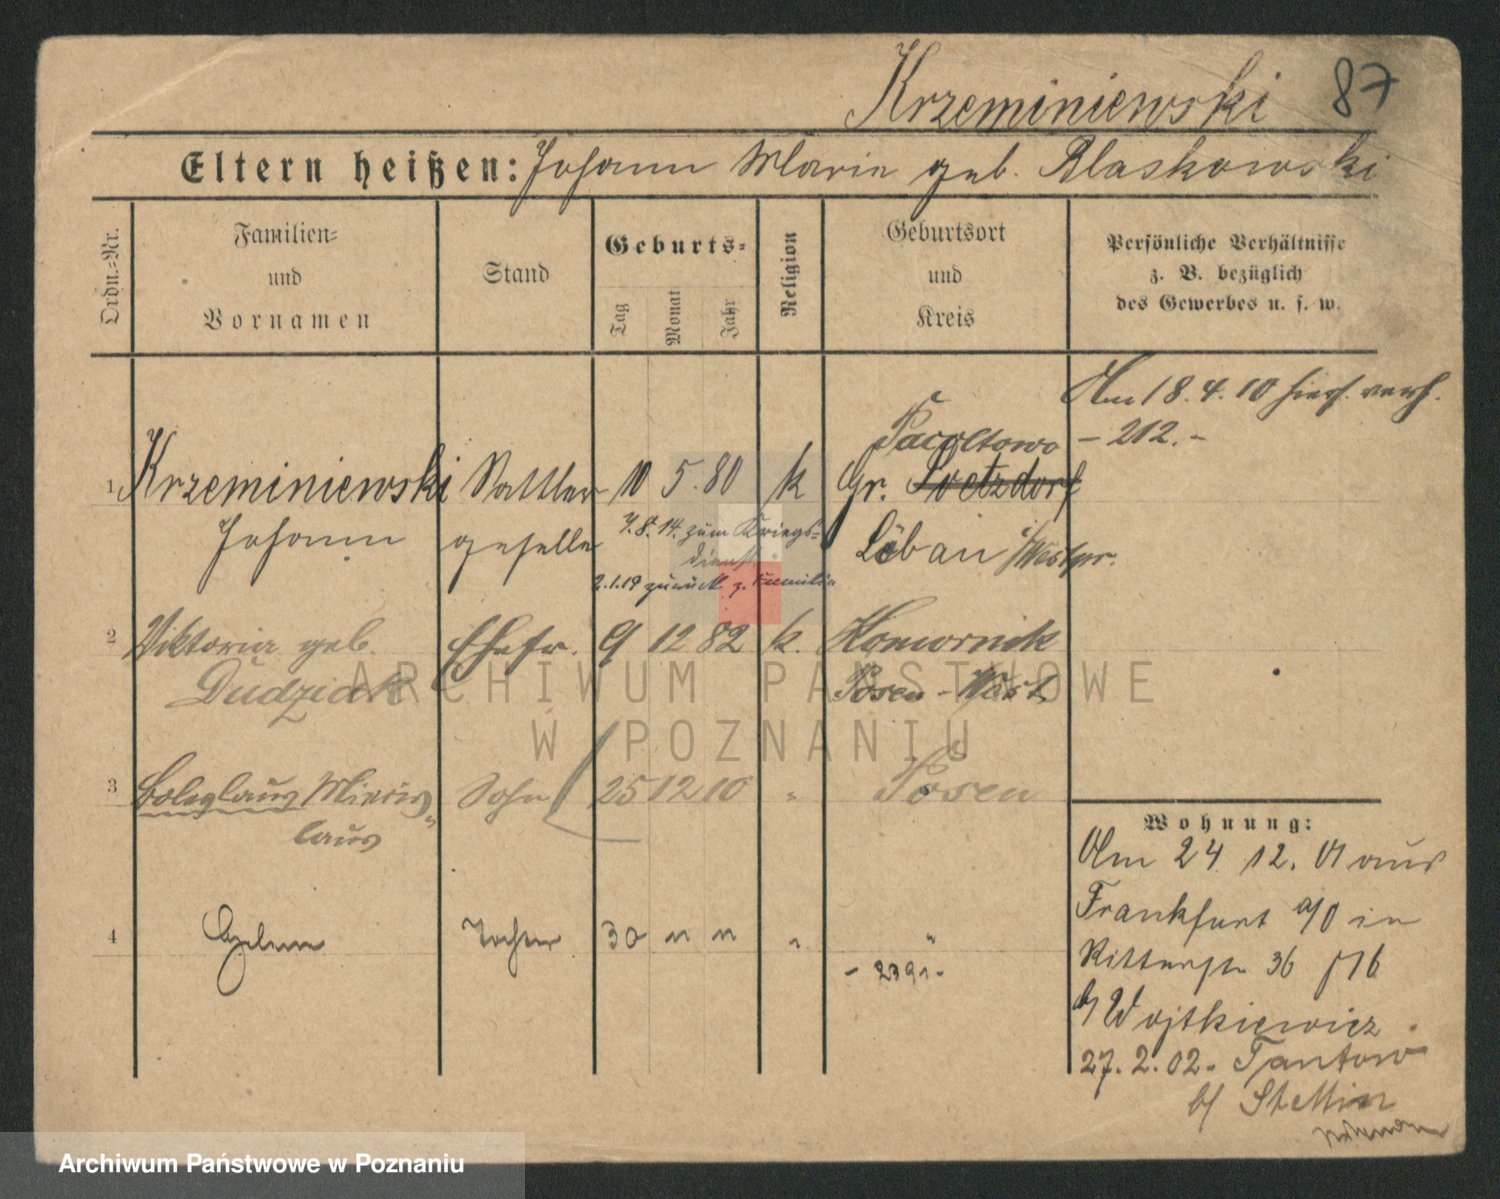 Krzeminiewski 87
Eltern heißen: Johann Marie geb. Blaskowski
Ordn.-Nr.
Familien-
und
Vornamen
Stand
Geburts-
Tag
Monat
Jahr
Religion
Geburtsort
und
Kreis
Persönliche Verhältnisse
z. B. bezüglich
des Gewerbes u. s. w.
Am 18.4.10 hies. verh.
- 212. -
Pacoltowo
1 Krzeminiewski Sattler 10 5. 80 k Gr.
Johann geselle
Löbau i/Westpr.
7.8.14. zum Kriegs-
dienst.
2.1.19 zurück z. Familie
2 Viktoria geb. Ehefr. 9 12 82 k. Komornik
Dudziak Posen-West
3 Boleslaus Miecis- Sohn 25 12 10 " Posen
laus
4 Tochter 30 " " " "
- 2391 -
Wohnung:
Am 24 12. 01 aus
Frankfurt a/O in
Ritterstr. 36
b/ Wojtkiewicz
27.2.02. Tantow
b/ Stettin
ARCHIWUM PAŃSTWOWE
W POZNANIU
Archiwum Państwowe w Poznaniu